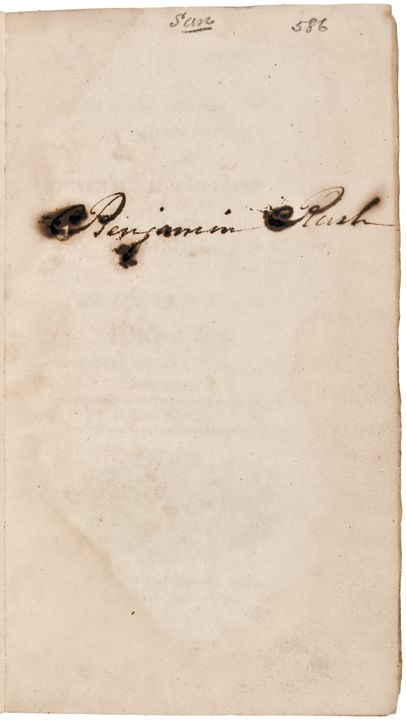 San 586
Benjamin Rush